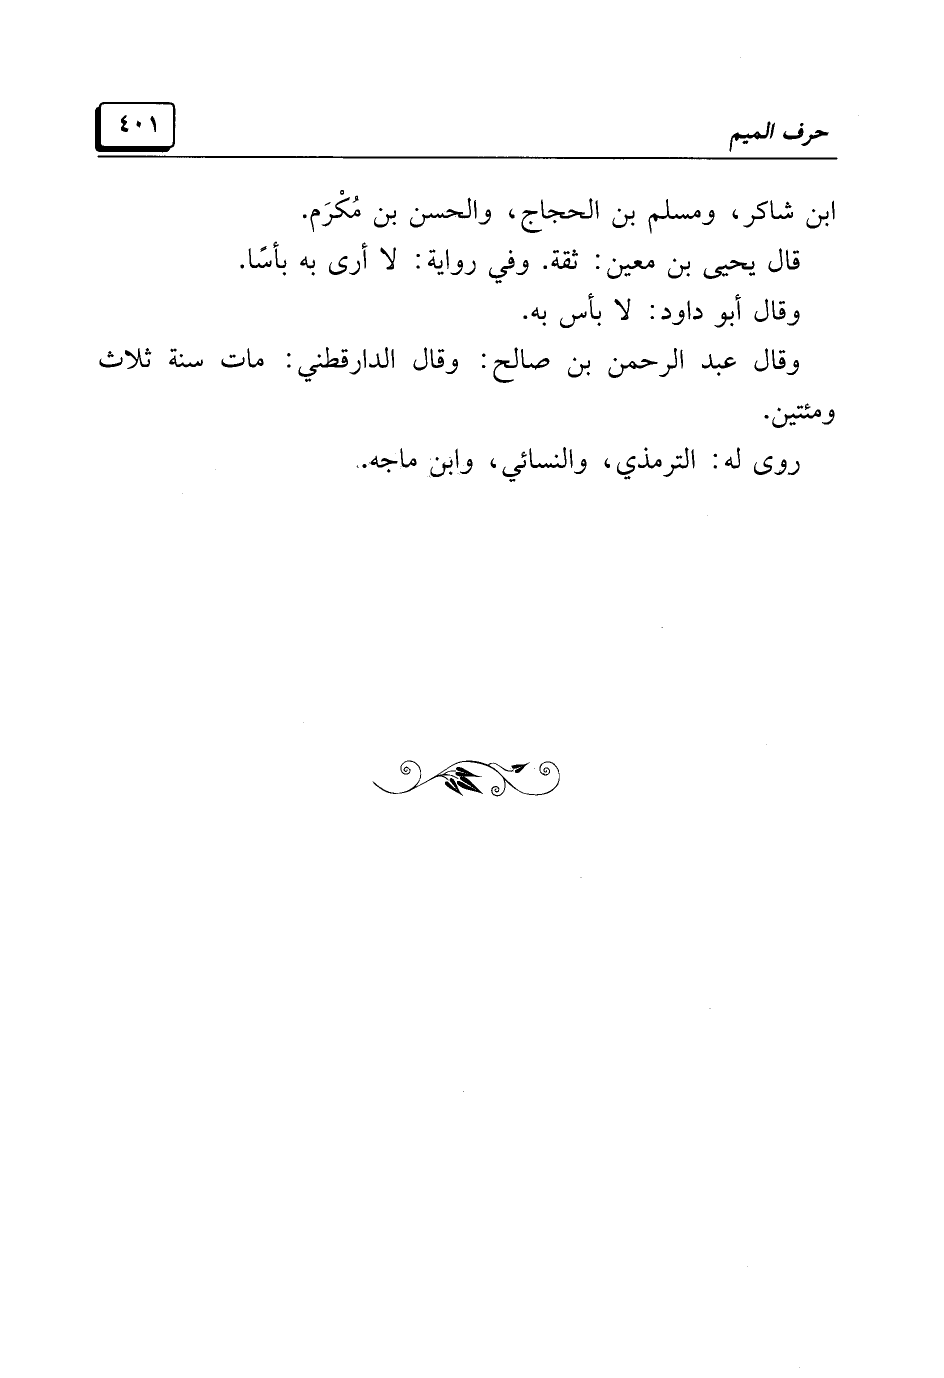 حرف الميم
٤٠١
ابن شاكر، ومسلم بن الحجاج، والحسن بن مُكْرَم.
قال يحيى بن معين: ثقة. وفي رواية: لا أرى به بأسًا.
وقال أبو داود: لا بأس به.
وقال عبد الرحمن بن صالح: وقال الدارقطني: مات سنة ثلاث
ومئتين.
روى له: الترمذي، والنسائي، وابن ماجه.